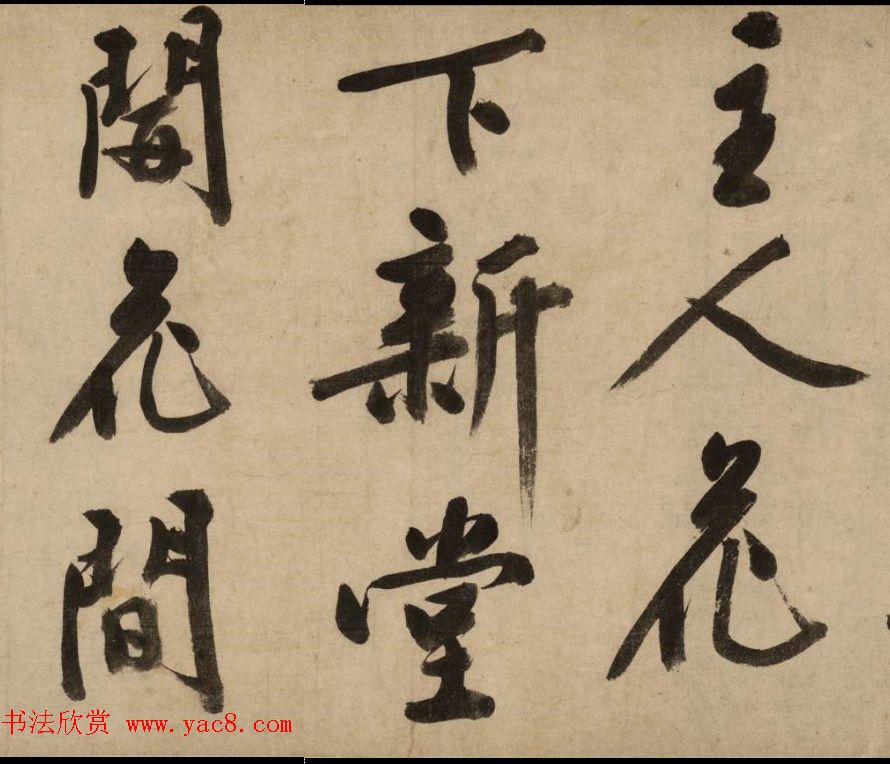 主人花
下新堂
開花間
书法欣赏 www.yac8.com